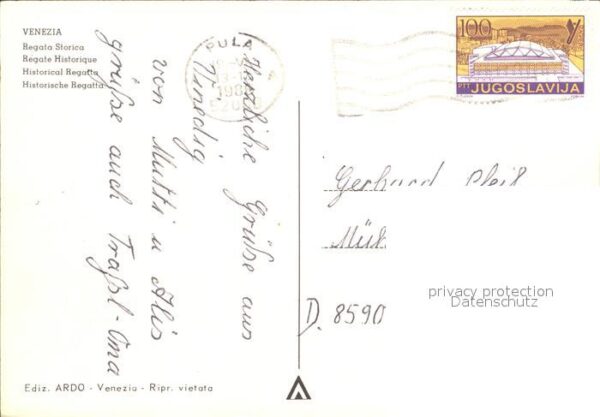 VENEZIA
Regata Storica
Regate Historique
Historical Regatta
Historische Regatta
PULA
100
PTT
JUGOSLAVIJA
Herzliche Grüße aus
Venedig
von Mutti u
grüße auch Oma
Gerhard
D. 8590
privacy protection
Datenschutz
Ediz. ARDO - Venezia - Ripr. vietata